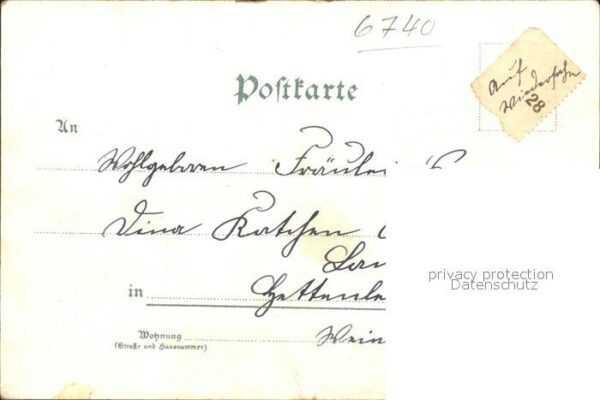 6740
Postkarte
Auf
Wiedersehn
28
An
Wohlgeboren Fräulei
Dina Katchen
Lan
in Hettenle
Wohnung
(Straße und Hausnummer)
Wein
privacy protection
Datenschutz